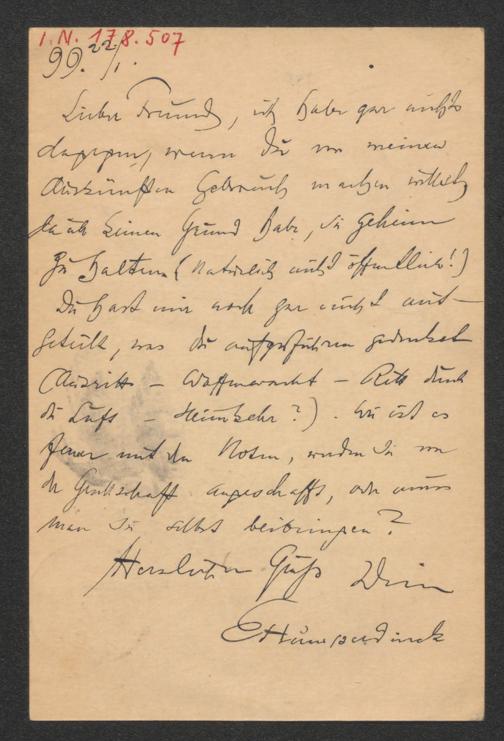 I.N. 178.507
99. 22/1.
Lieber Freund, ich habe gar nichts
dagegen, wenn Du von meinen
Auskünften Gebrauch machen willst,
da ich keinen Grund habe, sie geheim
zu halten (natürlich nicht öffentlich!)
Du hast mir noch gar nicht mit-
geteilt, was Du aufzuführen gedenkst
(Ausritt – Waffenwacht – Ritt durch
die Luft – Heimkehr?). Wie ist es
ferner mit den Noten, werden sie von
der Gesellschaft angeschafft, oder muss
man sie selbst beibringen?
Herzlichen Gruß Dein
EHumperdinck